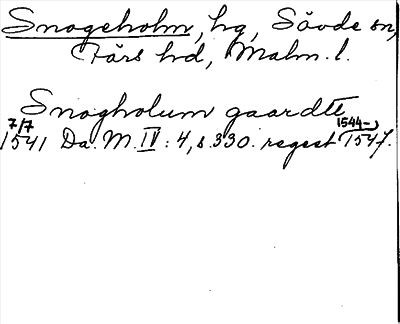 Snogeholm, hg, Sövde sn,
Färs hd, Malm. l.
Snogholum gaardtt
7/7 1544-
1541 Da. M. IV: 4, s. 330. regest 1547.